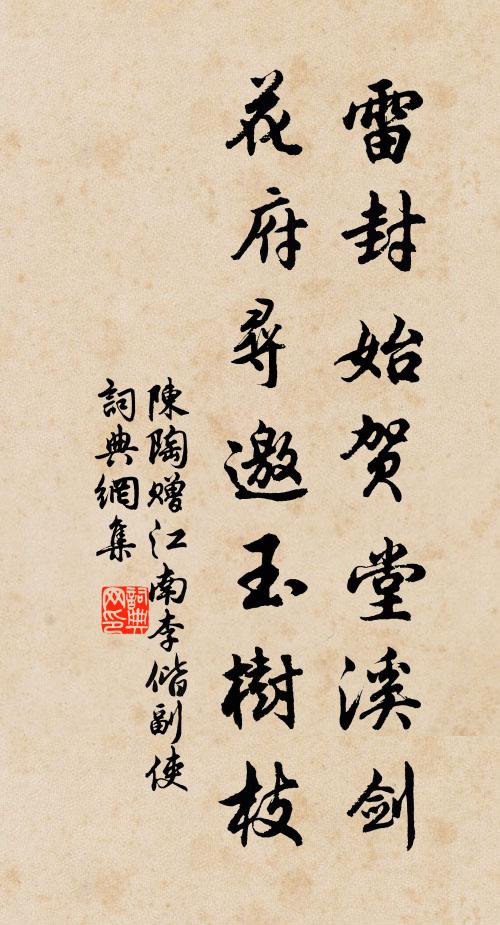 雷封始贺堂溪剑
花府尋邀玉樹枝
陳陶赠江南李偕副使
詞典網集
詞典网印